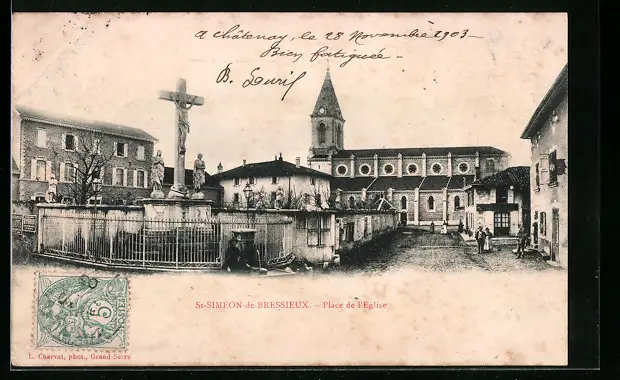 a Châtenay, le 28 Novembre 1903 -
Bien fatiguée -
B.
St-SIMÉON-de-BRESSIEUX. - Place de l'Église
POSTES
5
L. Charvat, phot., Grand-Serre